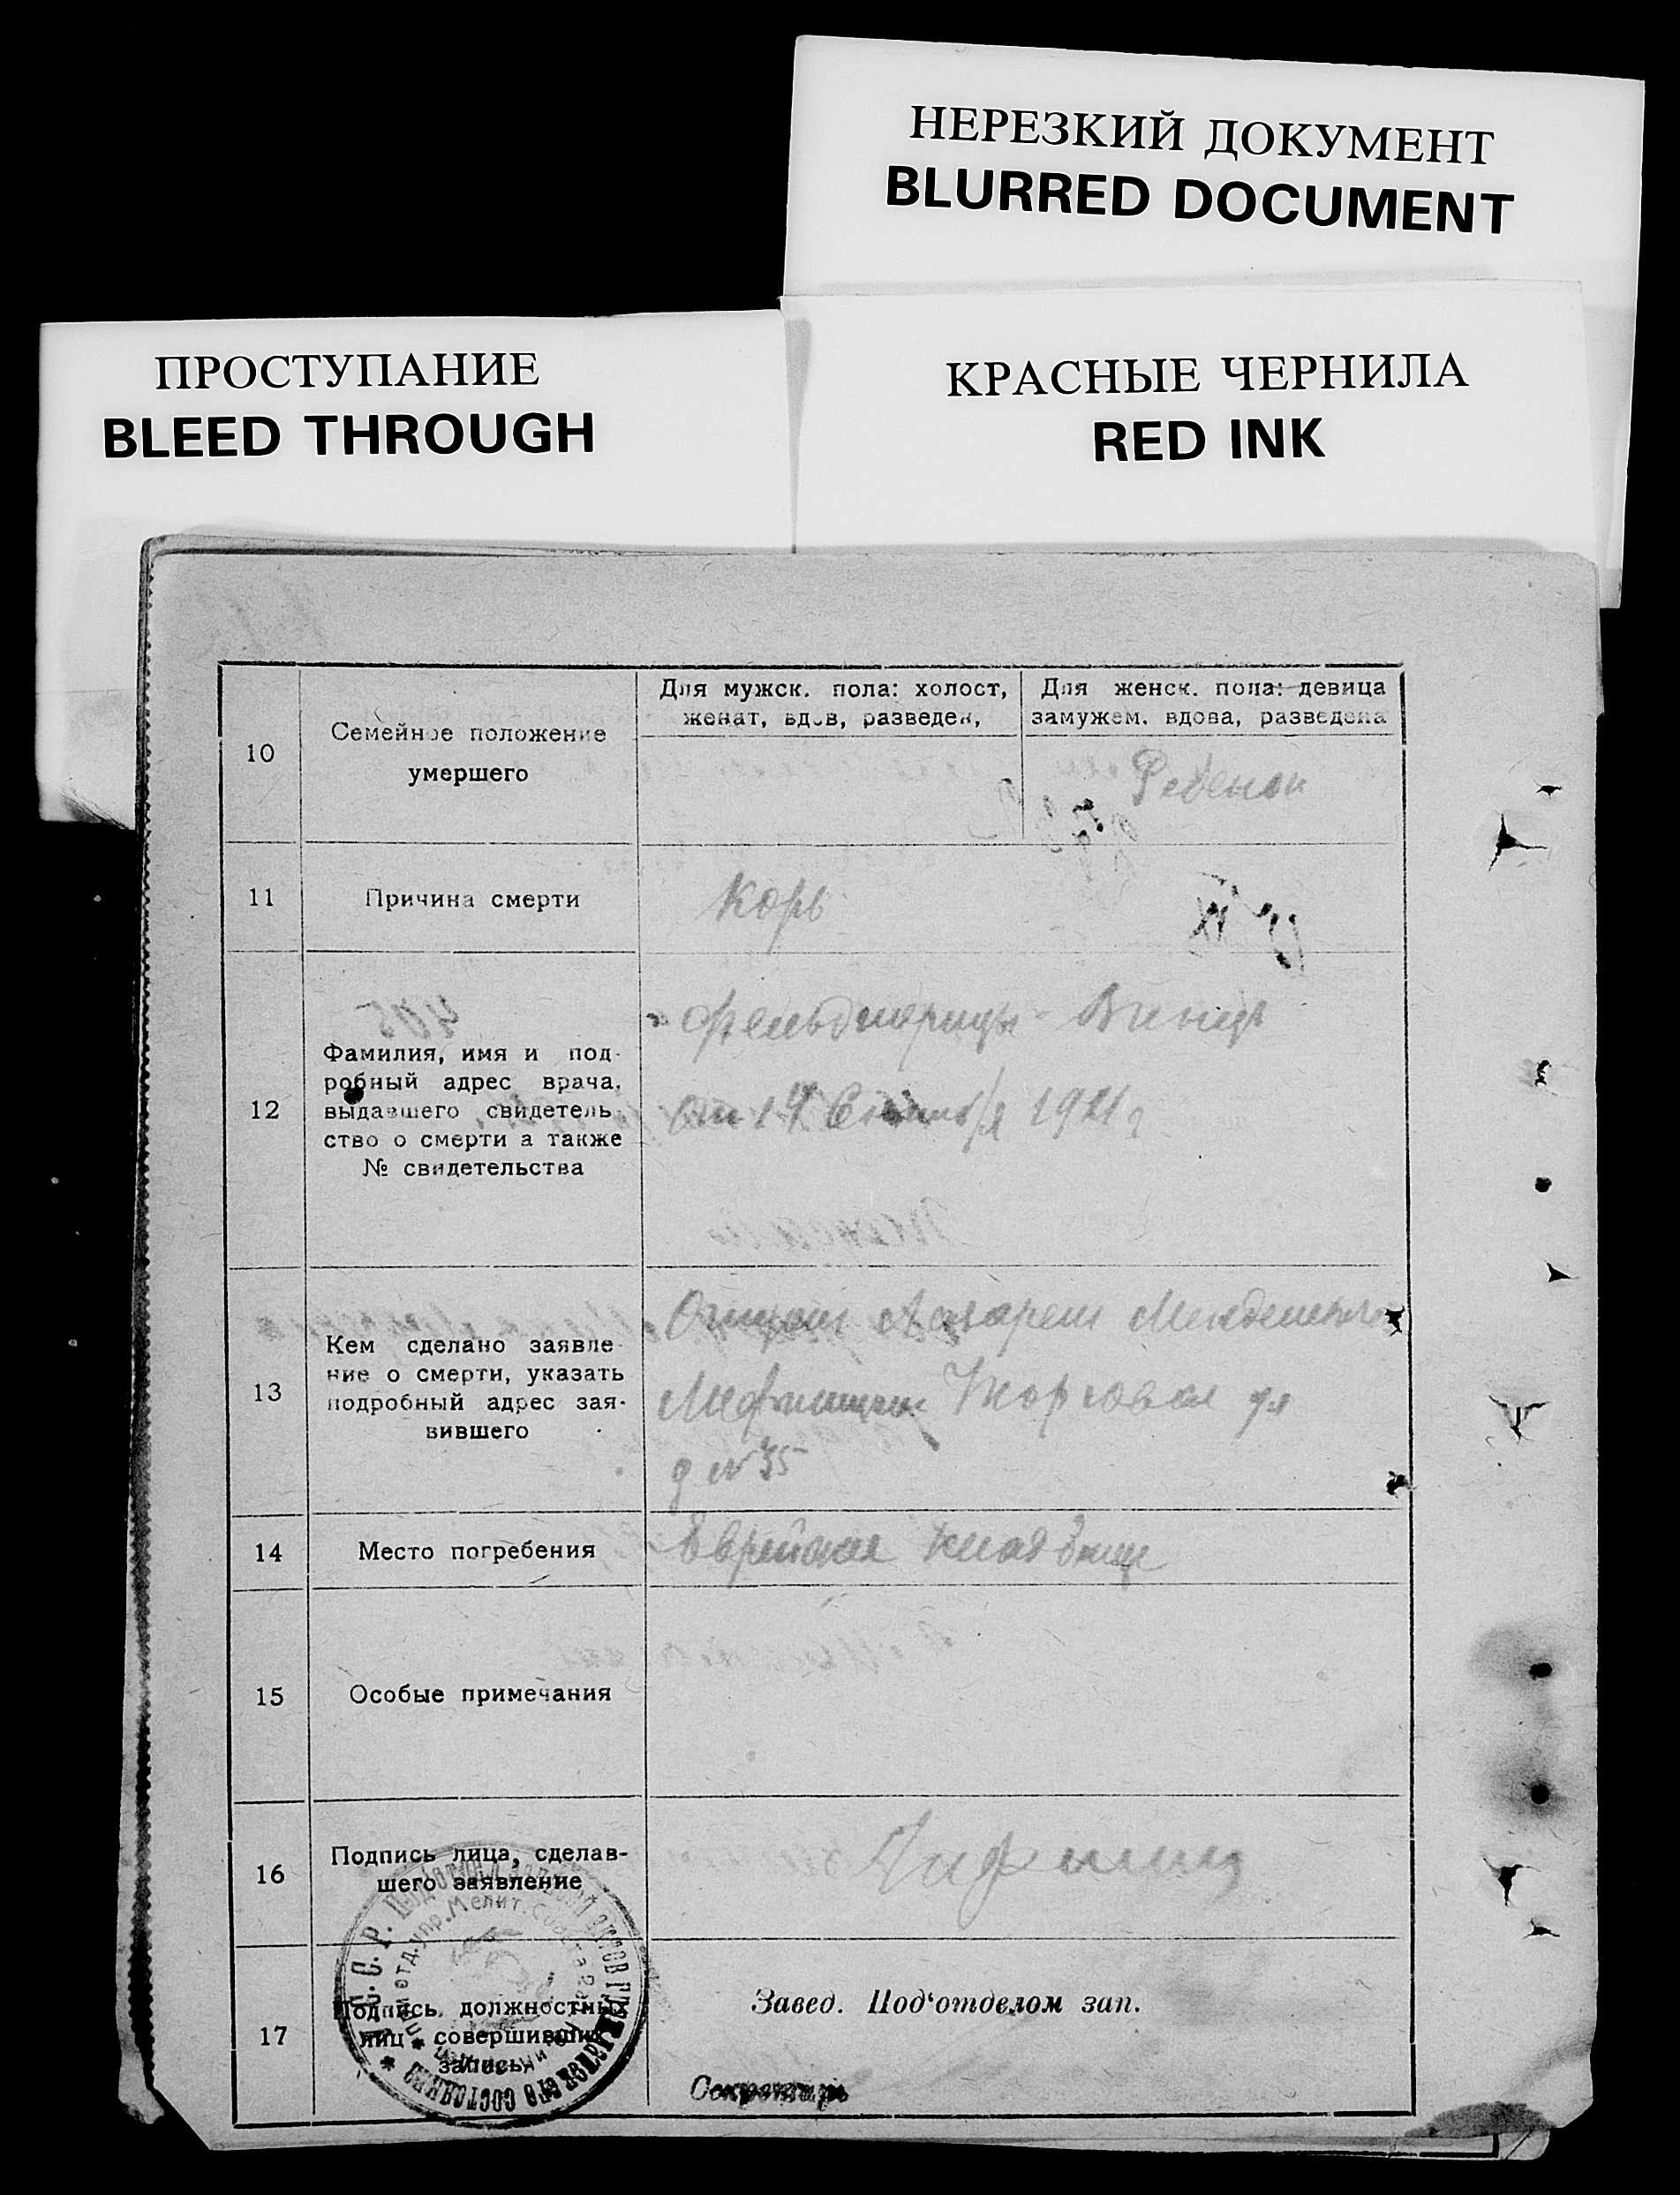 НЕРЕЗКИЙ ДОКУМЕНТ
BLURRED DOCUMENT
ПРОСТУПАНИЕ
BLEED THROUGH
КРАСНЫЕ ЧЕРНИЛА
RED INK
Для мужск. пола: холост,
женат, вдов, разведен,
Для женск. пола: девица
замужем, вдова, разведена
10
Семейное положение
умершего
Ребенок
11
Причина смерти
Корь
12
Фамилия, имя и под-
робный адрес врача,
выдавшего свидетель
ство о смерти а также
№ свидетельства
фельдшерицы
от 17 1921 г
13
Кем сделано заявле-
ние о смерти, указать
подробный адрес зая-
вившего
Отцом
Торговая ул
д № 35
14
Место погребения
Еврейское кладбище
15
Особые примечания
16
Подпись лица, сделав-
шего заявление
17
Подпись должностных
лиц совершивших
запись
Завед. Под‘отделом зап.
Секретарь